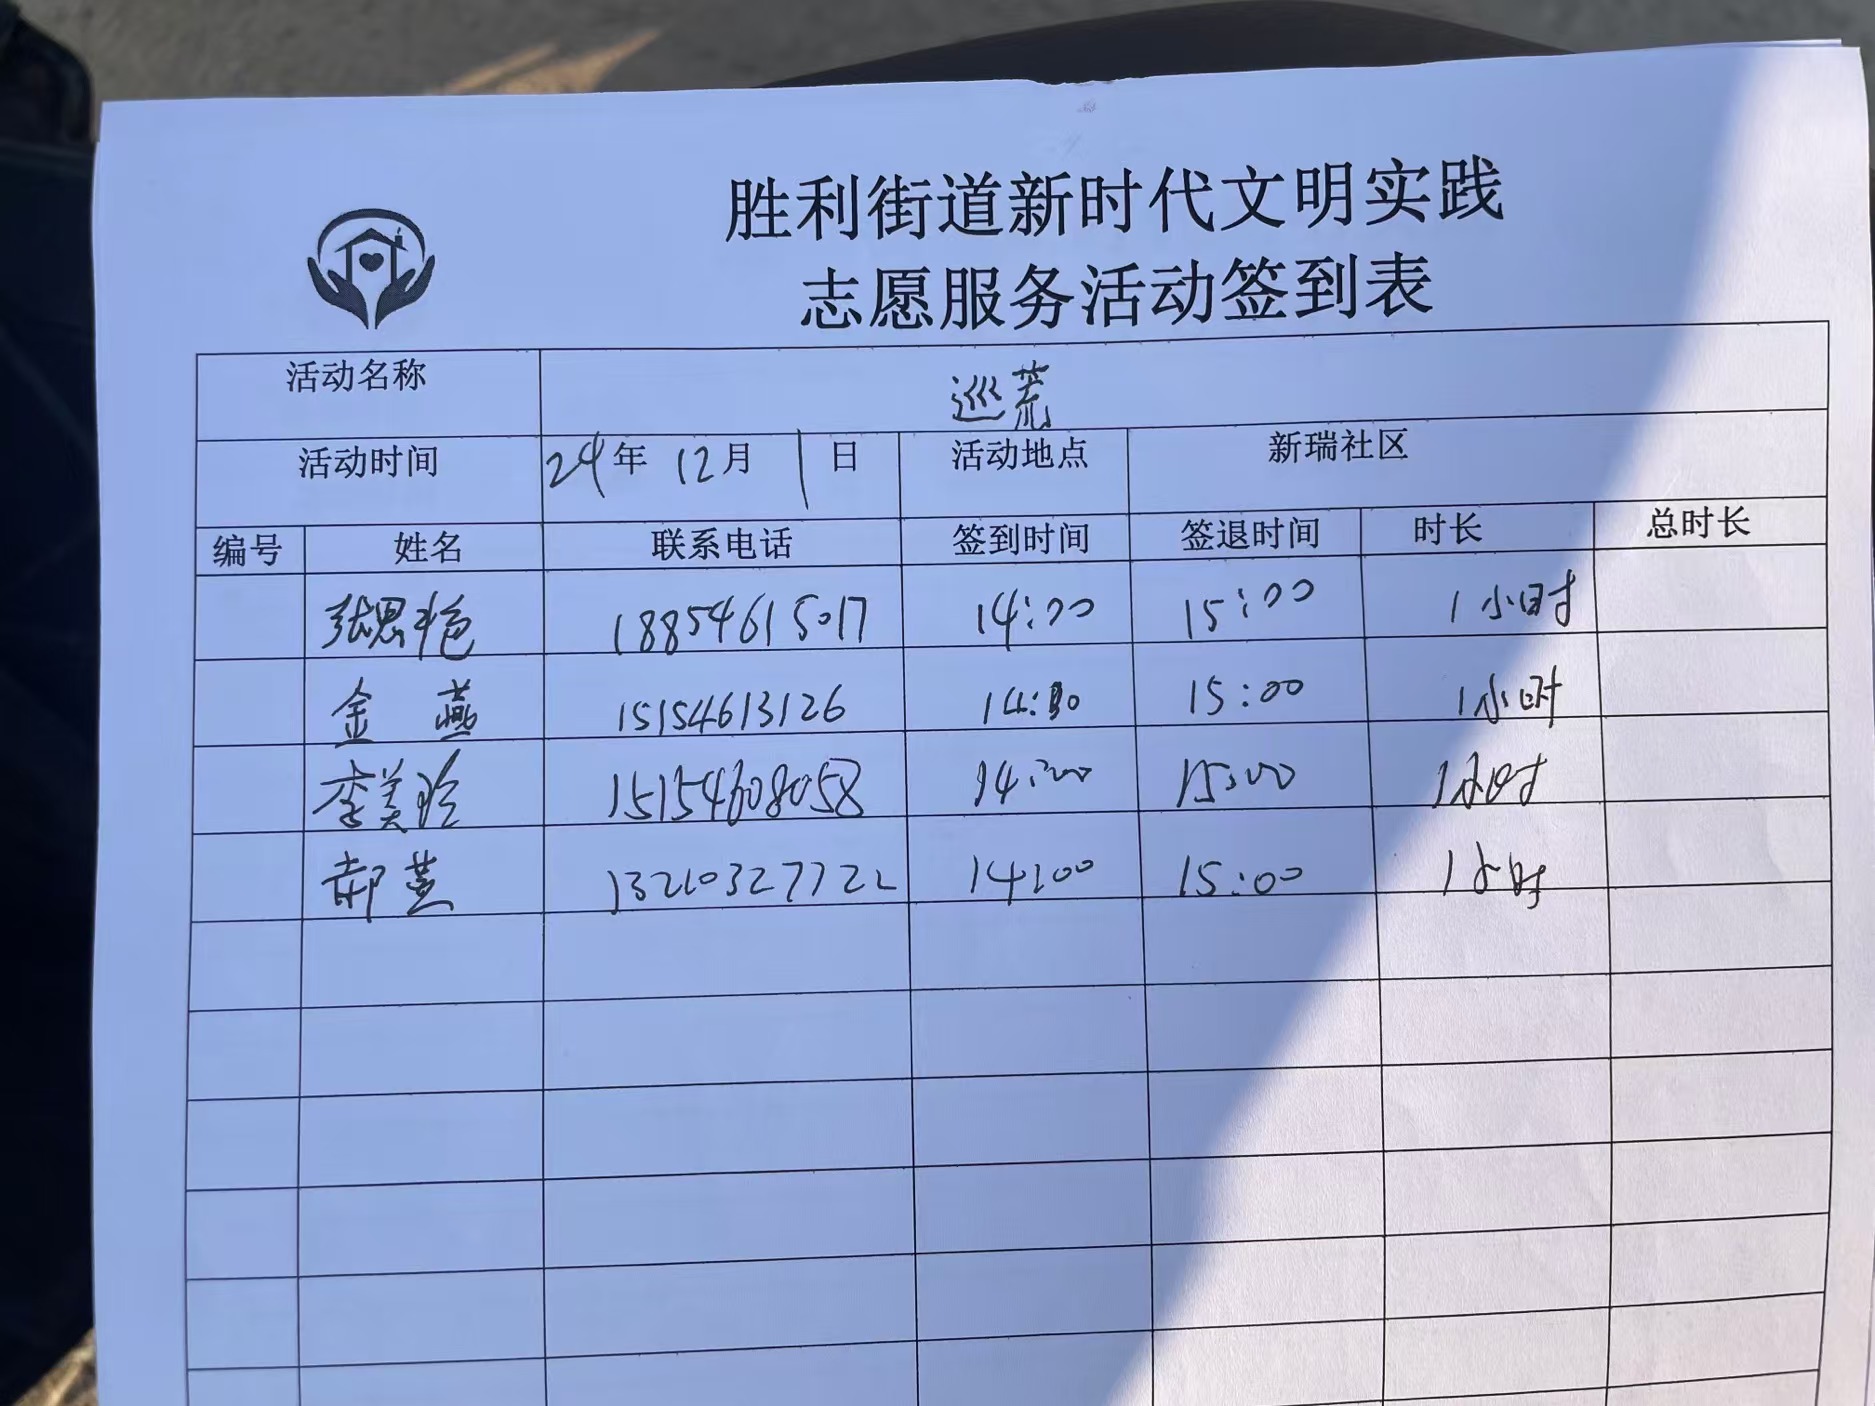 胜利街道新时代文明实践
志愿服务活动签到表
活动名称 巡荒
活动时间 24年 12月 1日 活动地点 新瑞社区
编号 姓名 联系电话 签到时间 签退时间 时长 总时长
张思艳 18854615017 14:00 15:00 1小时
金燕 15154613126 15:00 1小时
李美玲 15154608058 14:00 15:00 1小时
郝燕 13210327722 14:00 15:00 1小时